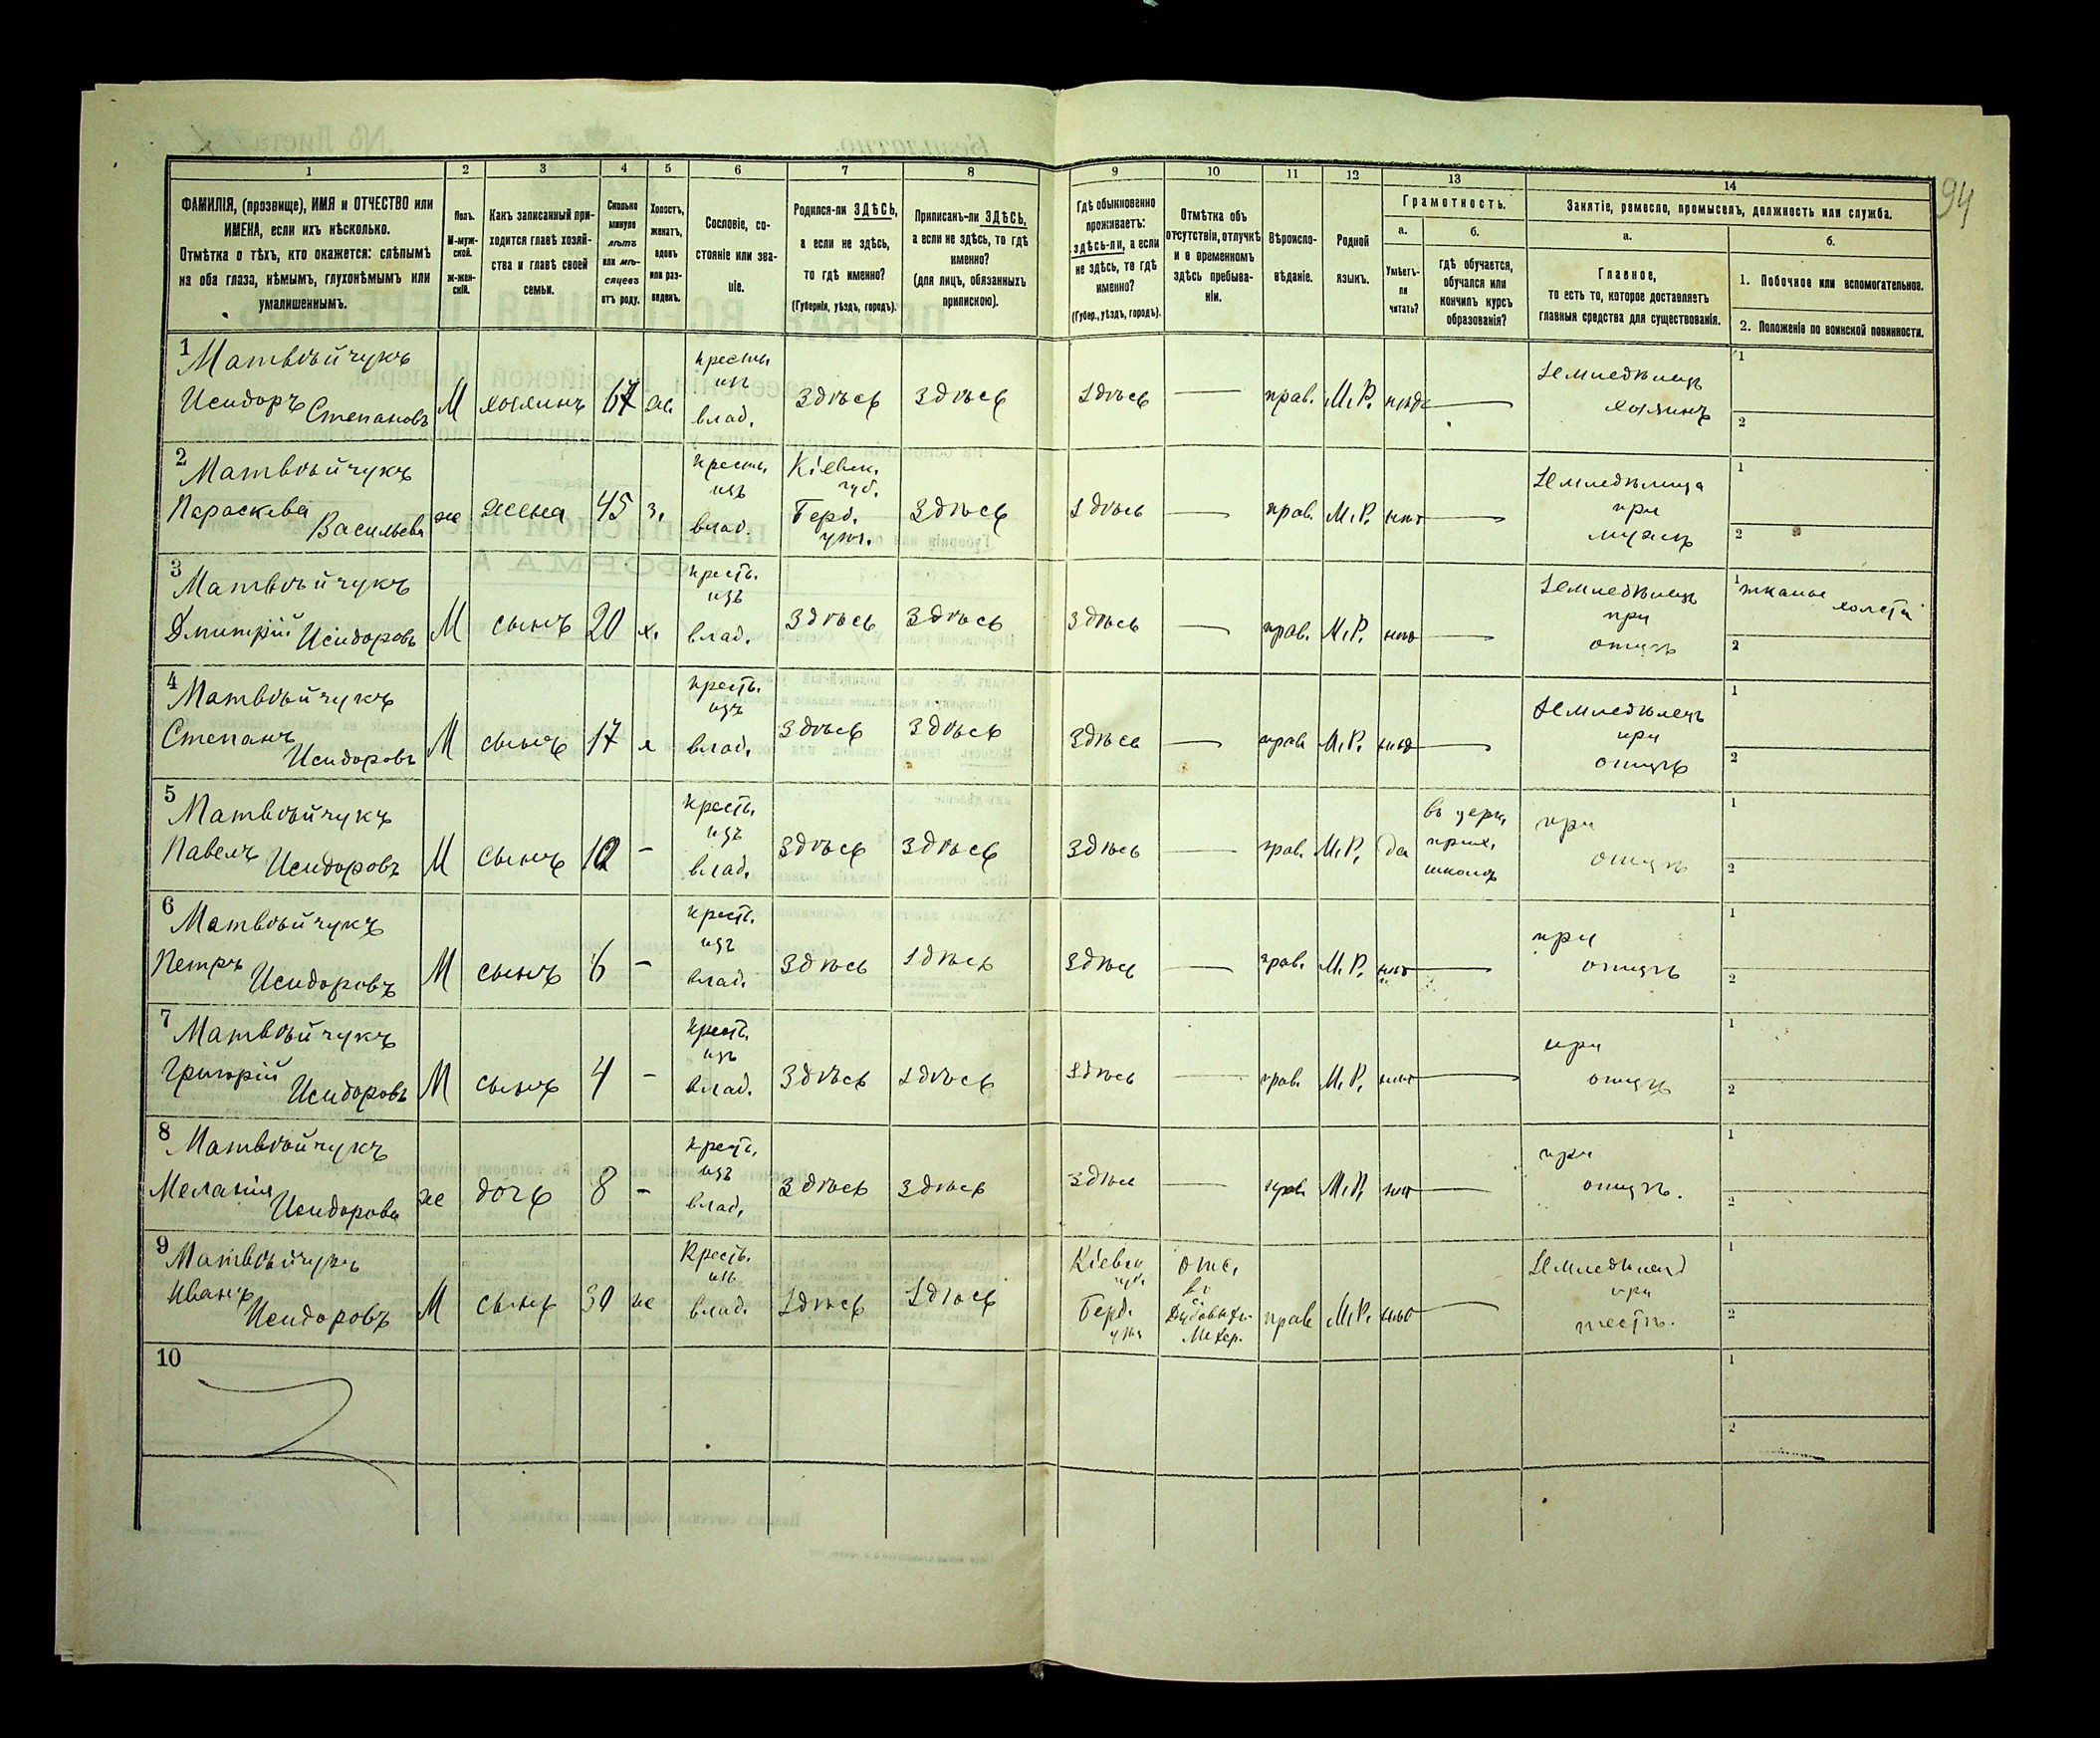 94
1 2 3 4 5 6 7 8 9 10 11 12 13 14
ФАМИЛІЯ, (прозвище), ИМЯ и ОТЧЕСТВО или
ИМЕНА, если ихъ нѣсколько.
Отмѣтка о тѣхъ, кто окажется: слѣпымъ
на оба глаза, нѣмымъ, глухонѣмымъ или
умалишеннымъ.
Полъ.
М-муж-
ской.
ж-жен-
скій.
Какъ записанный при-
ходится главѣ хозяй-
ства и главѣ своей
семьи.
Сколько
минуло
лѣтъ
или мѣ-
сяцевъ
отъ роду.
Холостъ,
женатъ,
вдовъ
или раз-
веденъ.
Сословіе, со-
стояніе или зва-
ніе.
Родился-ли ЗДѢСЬ,
а если не здѣсь,
то гдѣ именно?
(Губернія, уѣздъ, городъ).
Приписанъ-ли ЗДѢСЬ,
а если не здѣсь, то гдѣ
именно?
(для лицъ, обязанныхъ
припискою).
Гдѣ обыкновенно
проживаетъ:
здѣсь-ли, а если
не здѣсь, то гдѣ
именно?
(Губер., уѣздъ, городъ).
Отмѣтка объ
отсутствіи, отлучкѣ
и о временномъ
здѣсь пребыва-
ніи.
Вѣроиспо-
вѣданіе.
Родной
языкъ.
Грамотность.
а.
Умѣетъ-
ли
читать?
б.
гдѣ обучается,
обучался или
кончилъ курсъ
образованія?
Занятіе, ремесло, промыселъ, должность или служба.
а.
Главное,
то есть то, которое доставляетъ
главныя средства для существованія.
б.
1. Побочное или вспомогательное.
2. Положеніе по воинской повинности.
1 Матвѣйчукъ
Исидоръ Степановъ
М
хозяинъ
67
ж.
кресть.
изъ
влад.
Здѣсь
Здѣсь
Здѣсь
—
прав.
М.Р.
нѣтъ
—
Земледѣлецъ
хозяинъ
1
2
2 Матвѣйчукъ
Параскева
Васильева
ж
жена
45
з.
кресть.
изъ
влад.
Кіевск.
губ.
Берд.
уѣз.
Здѣсь
Здѣсь
—
прав.
М.Р.
нѣт
—
Земледѣлица
при
мужѣ
1
2
3 Матвѣйчукъ
Дмитрій Исидоровъ
М
сынъ
20
х.
кресть.
изъ
влад.
Здѣсь
Здѣсь
Здѣсь
—
прав.
М.Р.
нѣт
—
Земледѣлецъ
при
отцѣ
1 тканье
холста
2
4 Матвѣйчукъ
Степанъ
Исидоровъ
М
сынъ
17
х
кресть.
изъ
влад.
Здѣсь
Здѣсь
Здѣсь
—
прав
М.Р.
нѣт
—
Земледѣлецъ
при
отцѣ
1
2
5 Матвѣйчукъ
Павелъ Исидоровъ
М
сынъ
10
-
кресть.
изъ
влад.
Здѣсь
Здѣсь
Здѣсь
—
прав.
М.Р.
да
въ церк.
прих.
школѣ
при
отцѣ
1
2
6 Матвѣйчукъ
Петръ Исидоровъ
М
сынъ
6
-
кресть.
изъ
влад.
Здѣсь
Здѣсь
Здѣсь
—
прав.
М.Р.
нѣт
—
при
отцѣ
1
2
7 Матвѣйчукъ
Григорій
Исидоровъ
М
сынъ
4
-
кресть.
изъ
влад.
Здѣсь
Здѣсь
Здѣсь
—
прав.
М.Р.
нѣт
—
при
отцѣ
1
2
8 Матвѣйчукъ
Меланія
Исидорова
ж
дочь
8
-
кресть.
изъ
влад.
Здѣсь
Здѣсь
Здѣсь
—
прав.
М.Р.
нѣт
—
при
отцѣ.
1
2
9 Матвѣйчукъ
Иванъ
Исидоровъ
М
сынъ
30
ж
Кресть.
изъ
влад.
Здѣсь
Здѣсь
Кіевск
губ.
Берд.
уѣз
отс.
въ
с.
прав
М.Р.
нѣт
—
Земледѣлец
при
тестѣ.
1
2
10
1
2